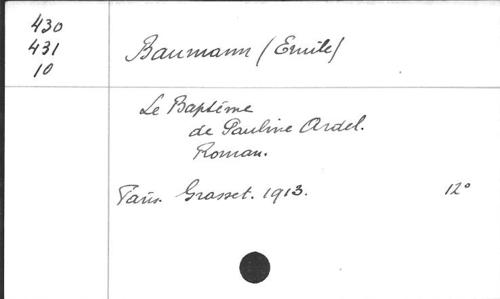 430
431
10
Baumann (Emile)
Le Baptême
de Pauline Ardel.
Roman.
Paris. Grasset. 1913. 12°